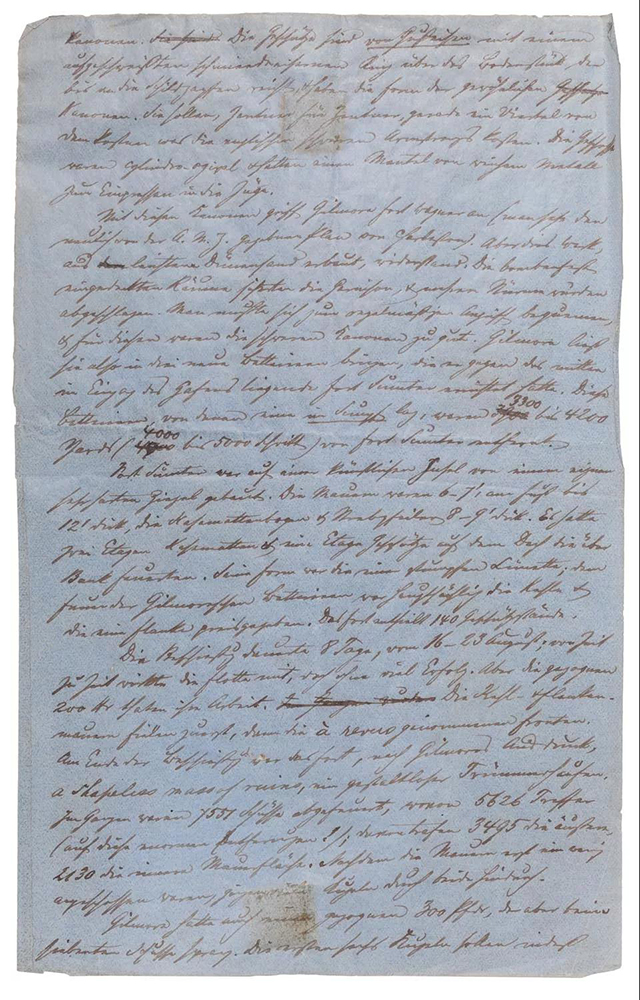 Kanonen. Die Geschütze sind von Gußeisen mit einem
aufgeschweißten schmiedeeisernen Ring über das Bodenstück, der
bis an die Schildzapfen reicht, haben die Form der gewöhnlichen
Kanonen. Sie sollen, Zentner für Zentner, gerade ein Viertel von
dem kosten was die englischen Armstrongs kosten. Die Geschosse
waren cylindro-ogival & hatten einen Mantel von weichem Metall
zum Einpressen in die Züge.
Mit diesen Kanonen griff Gilmore Fort Wagner an (man sehe den
neulich von der A. M. Z. gegebenen Plan von Charleston). Aber dies Werk,
aus Dünensand erbaut, widerstand. Die bombenfest
eingedeckten Räume schützten die Garnison, & mehrere Stürme wurden
abgeschlagen. Man mußte sich zum regelmäßigen Angriff bequemen,
& für diesen waren die schweren Kanonen zu gut. Gilmore ließ
sie also in drei neue Batterien bringen, die er gegen das mitten
im Eingang des Hafens liegende Fort Sumter errichtet hatte. Diese
Batterien, von denen eine im Sumpf lag, waren 3300 bis 4200
Yards (4000 bis 5000 Schritt) von Fort Sumter entfernt.
Fort Sumter war auf einer künstlichen Insel von einem eignen
harten Ziegel gebaut. Die Mauern waren 6-7', am Fuß bis
12' dick, die Kasemattenbogen & Strebepfeiler 8-9' dick. Es hatte
zwei Etagen Kasematten & eine Etage Geschütze auf dem Dach die über
Bank feuerten. Seine Form war die einer stumpfen Lünette; dem
Feuer der Gilmoreschen Batterien war hauptsächlich die Kehle &
die eine Flanke preisgegeben. Das Fort enthielt 140 Geschützstände.
Die Beschießung dauerte 8 Tage, vom 16-23 August; von Zeit
zu Zeit wirkte die Flotte mit, doch ohne viel Erfolg. Aber die gezognen
200 thaten ihre Arbeit. Die Kehl- & Flanken-
mauern fielen zuerst, dann die à revers genommenen Fronten.
Am Ende der Beschießung war das Fort, nach Gilmores Ausdruck,
a shapeless mass of ruins, ein gestaltloser Trümmerhaufen.
Im Ganzen waren 7551 Schüsse abgefeuert, wovon 5626 Treffer
(auf diese enormen Entfernungen!); davon trafen 3495 die äußere,
2130 die innere Mauerfläche. Nachdem die Mauern erst ein wenig
angeschossen waren, gingen die Kugeln durch beide hindurch.
Gilmore hatte auch einen gezognen 300 Pfdr, der aber beim
siebenten Schusse sprang. Die ersten sechs Kugeln sollen indeß